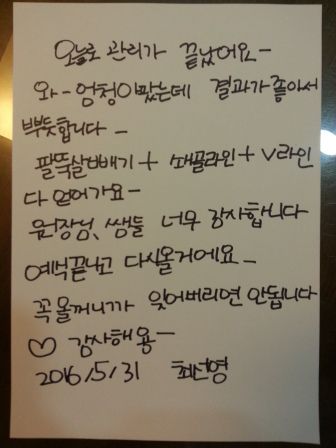 오늘로 관리가 끝났어요-
와- 엄청아팠는데 결과가 좋아서
뿌듯합니다-
팔뚝살빼기+ 쇄골라인+V라인
다 얻어가요-
원장님, 쌤들 너무 감사합니다
예식끝나고 다시올거에요-
꼭 올꺼니까 잊어버리면 안됩니다
♡ 감사해용-
2016/5/31 최선영